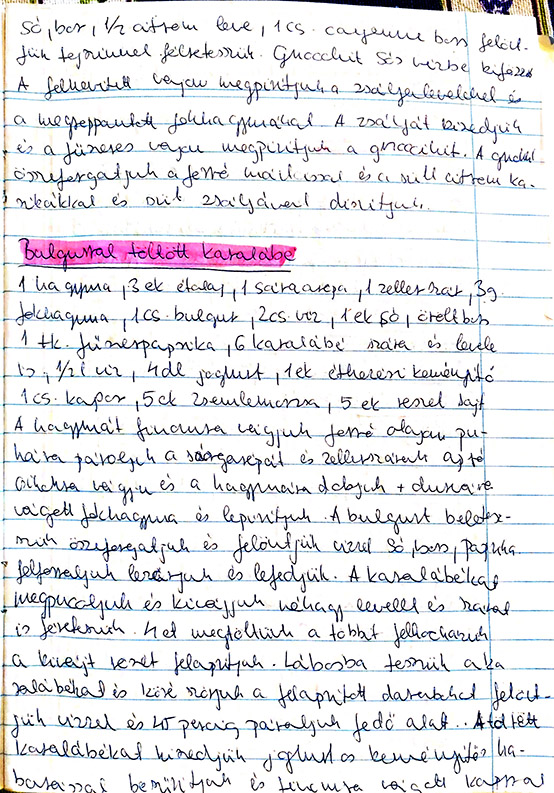 Só, bors, 1/2 citrom leve, 1 cs. cayenne bors felönt-
jük tejszínnel félretesszük. Gnocchit Sós vízbe kifőzzük
A felhevített vajon megpirítjuk a zsályaleveleket és
a megroppantott fokhagymákat. A zsályát kiszedjük
és a fűszeres vajon megpirítjuk a gnocchit. A gnocchit
összeforgatjuk a forró mártással és a sült citrom ka-
rikákkal és sült zsályával díszítjük.
Bulgurral töltött karalábé
1 hagyma, 3 ek étolaj, 1 sárgarépa, 1 zeller szár, 3 g.
fokhagyma, 1 cs. bulgur, 2 cs. víz, 1 ek só, őrölt bors
1 tk. fűszerpaprika, 6 karalábé szára és levele
is, 1/2 l víz, 4 dl joghurt, 1 ek étkezési keményítő
1 cs. kapor, 5 ek zsemlemorzsa, 5 ek reszel sajt
A hagymát finomra vágjuk forró olajon pu-
hára pároljuk a sárgarépát és zellerszárat apró
cikkekre vágju és a hagymára dobjuk + durvára
vágott fokhagyma és lepirítjuk. A bulgurt beletesz-
szük összeforgatjuk és felöntjük vízzel só, bors, paprika
felforraljuk lezárjuk és lefedjük. A karalábékat
megpucoljuk és kivájjuk néhány levelét és szárat
is félreteszük. 4 et megtöltünk a többit felkockázzuk
a kivájt részt felaprítjuk. Lábosba tesszük a ka
ralábékat és köré szórjuk a felaprított darabokat felönt-
jük vízzel és 45 percig pároljuk fedő alatt. A töltött
karalábékat kiszedjük joghurtos keményítős ha-
barással besűrítjük és finomra vágott kaporral